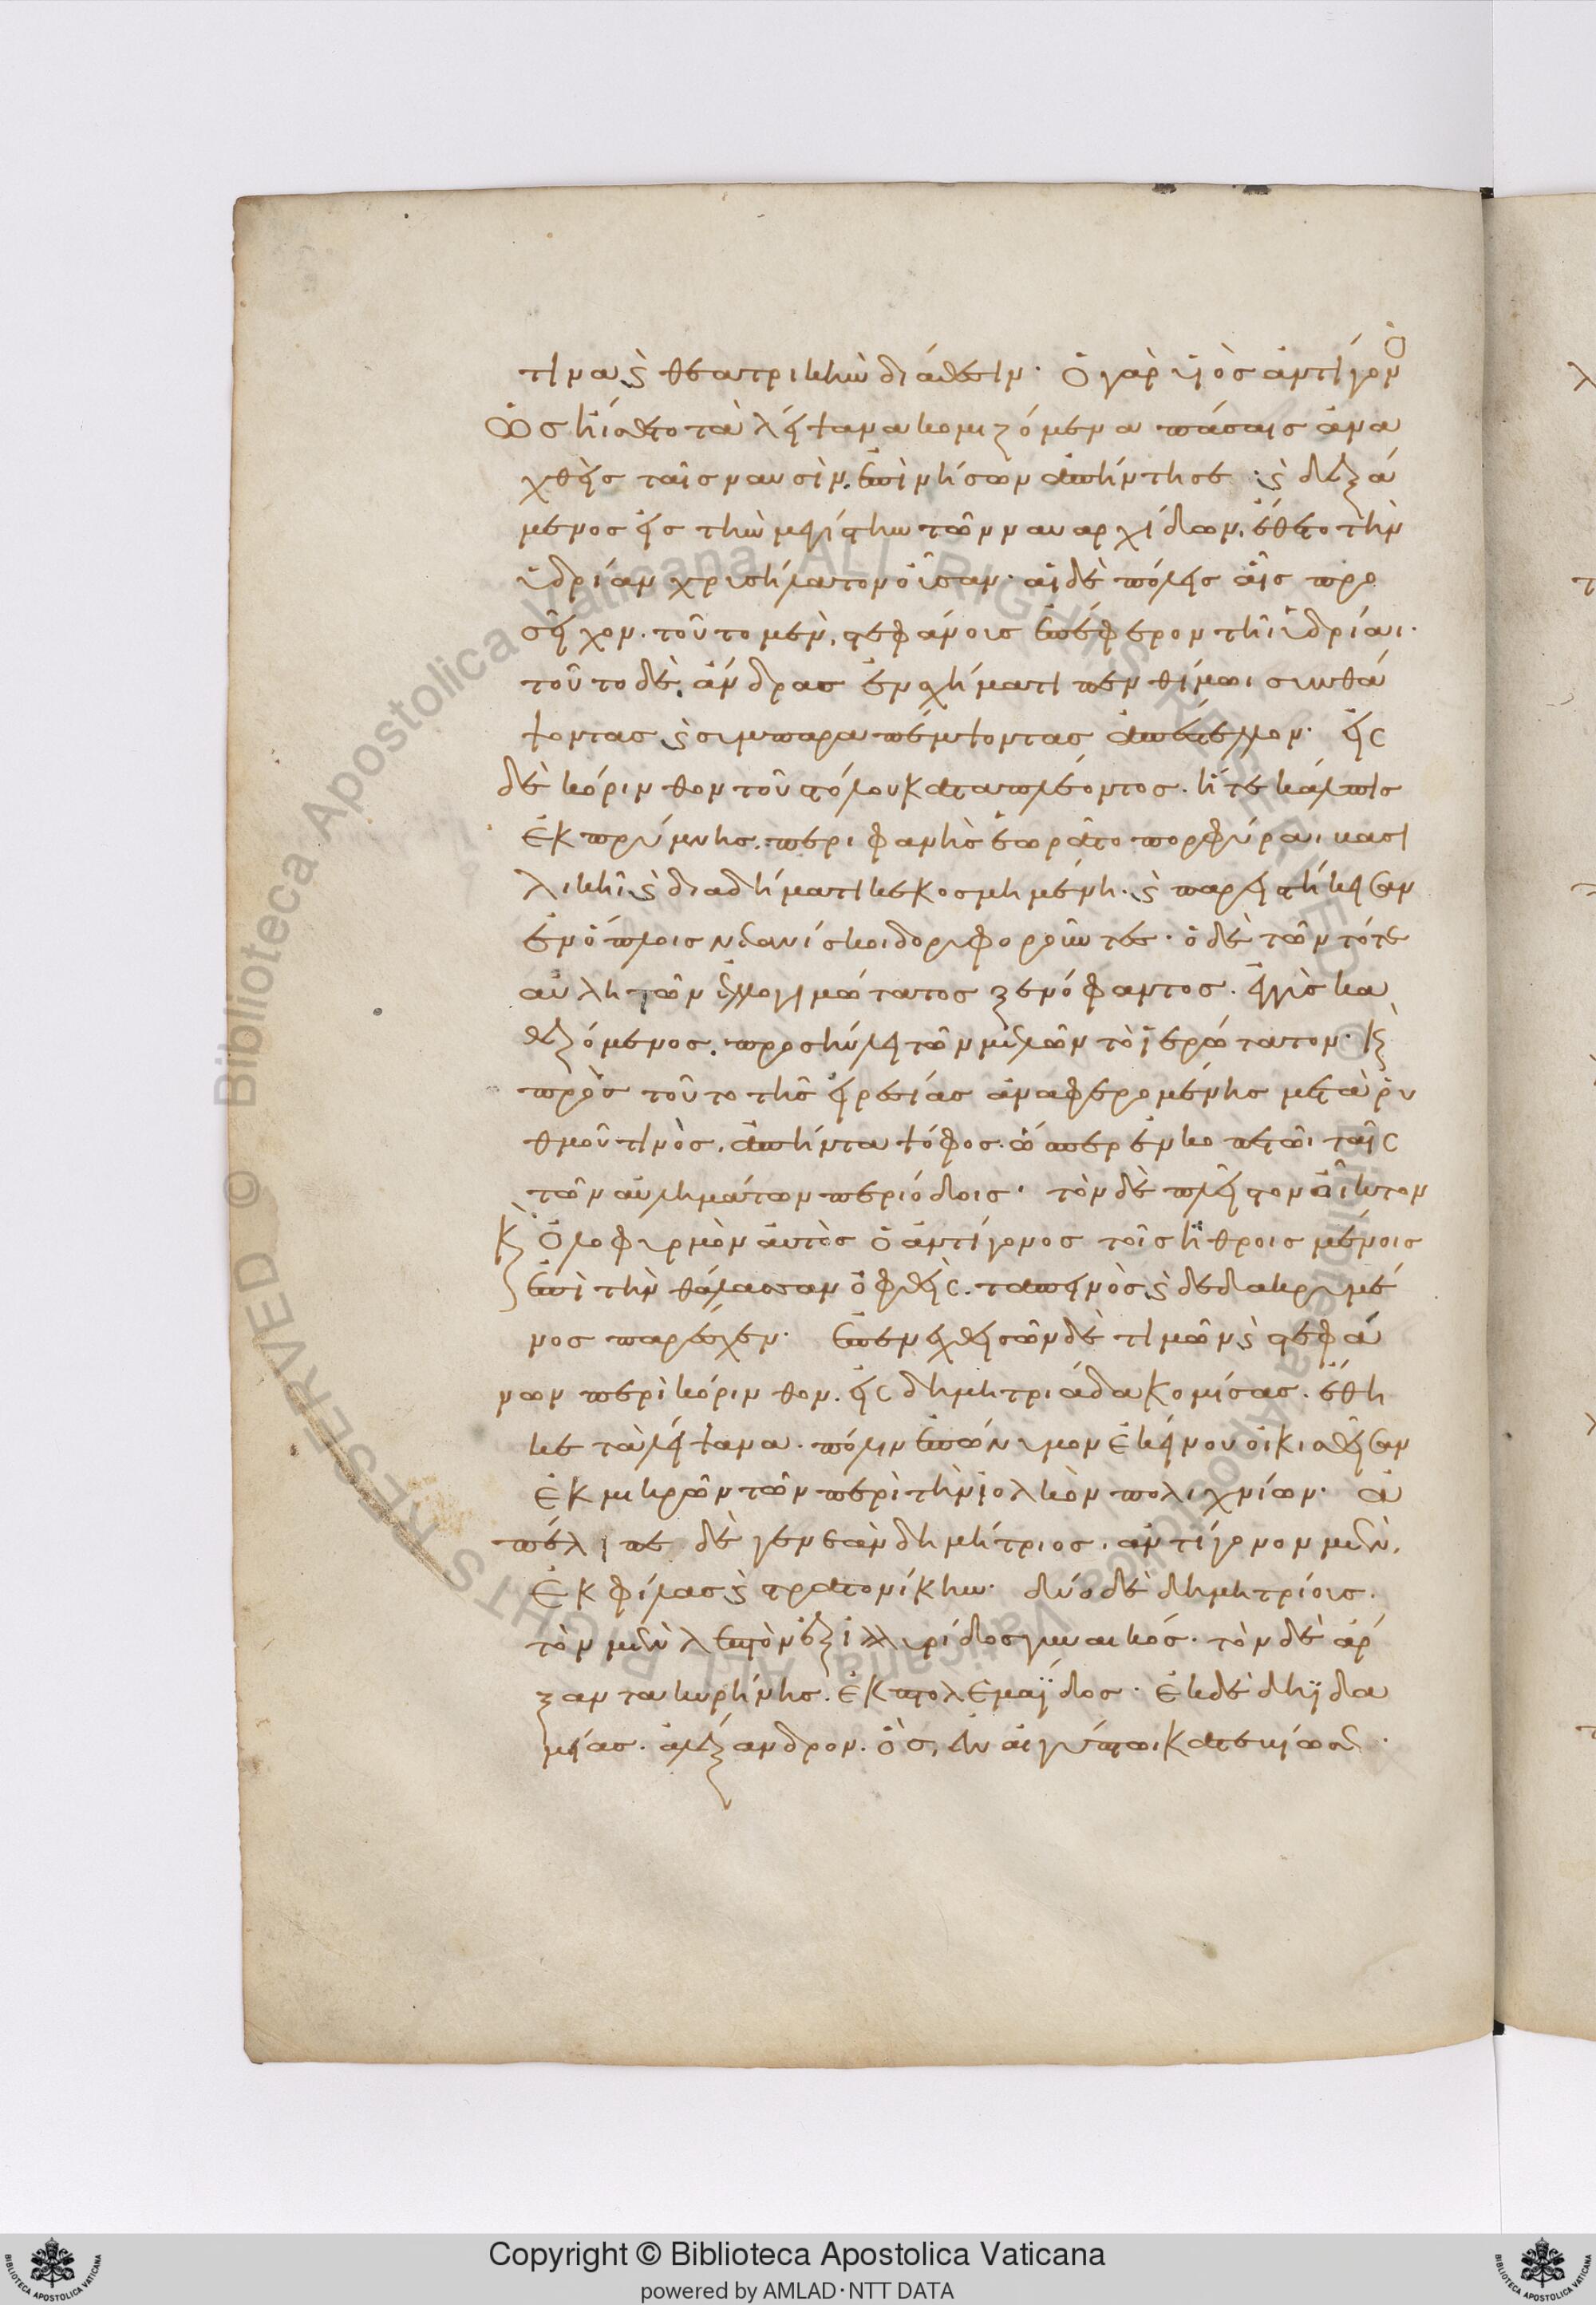 τινα καὶ θεατρικὴν διάθεσιν· ὁ γὰρ υἱὸς ἀντίγονο
ὡς ἤσθετο τὰ λείψανα κομιζόμενα πάσαις ἀνα
χθεὶς ταῖς ναυσὶν. ἐπὶ νήσων ἀπήντησε· καὶ δεξά
μενος εἰς τὴν μεγίστην τῶν ναυαρχίδων. ἔθετο τὴν
ὑδρίαν χρυσήλατον οὖσαν· αἱ δὲ πόλεις αἷς προ
σεῖχον. τοῦτο μὲν, στεφάνους ἐπέφερον τῆι ὑδρίαι·
τοῦτο δὲ, ἄνδρας ἐν σχήματι πενθίμωι συνθά
ψοντας καὶ συμπαραπέμψοντας ἀπέστελλον· εἰς
δὲ κόρινθον τοῦ στόλου καταπλέοντος. ἥ τε κάλπις
ἐκ πρύμνης. περιφανὴς ἑωρᾶτο πορφύραι βασι
λικῆι καὶ διαδήματι κεκοσμημένη. καὶ παρειστήκεισαν
ἐν ὅπλοις νεανίσκοι δορυφοροῦντες· ὁ δὲ τῶν τότε
αὐλητῶν ἐλλογιμώτατος ξενόφαντος. ἐγγὺς κα
θεζόμενος. προσηύλει τῶν μελῶν τὸ ἱερώτατον· καὶ
πρὸς τοῦτο τῆς εἰρεσίας ἀναφερομένης μετὰ ῥυ
θμοῦ τινὸς. ἀπήντα ψόφος. ὥσπερ ἐν κοπετῶι ταῖς
τῶν αὐλημάτων περιόδοις· τὸν δὲ πλεῖστον οἶκτον
καὶ ὀλοφυρμὸν αὐτὸς ὁ ἀντίγονος τοῖς ἠθροισμένοις
ἐπὶ τὴν θάλασσαν ὀφθεὶς. ταπεινὸς καὶ δεδακρυμέ
νος παρέσχεν· ἐπενεχθεισῶν δὲ τιμῶν καὶ στεφά
νων περὶ κόρινθον. εἰς δημητριάδα κομίσας. ἔθη
κε τὰ λείψανα. πόλιν ἐπώνυμον ἐκείνου οἰκισθεῖσαν
ἐκ μικρῶν τῶν περὶ τὴν ἰολκὸν πολιχνίων· ἀ
πέλιπε δὲ γενεὰν δημήτριος. ἀντίγονον μὲν,
ἐκ φίλας καὶ στρατονίκην· δύο δὲ δημητρίους.
τὸν μὲν λεπτὸν ἐξ ἰλλυρίδος γυναικός. τὸν δὲ ἄρ
ξαντα κυρήνης. ἐκ πτολεμαΐδος· ἐκ δὲ δηϊδα
μείας. ἀλέξανδρον. ὃς, ἐν αἰγύπτωι κατεβίωσεν·